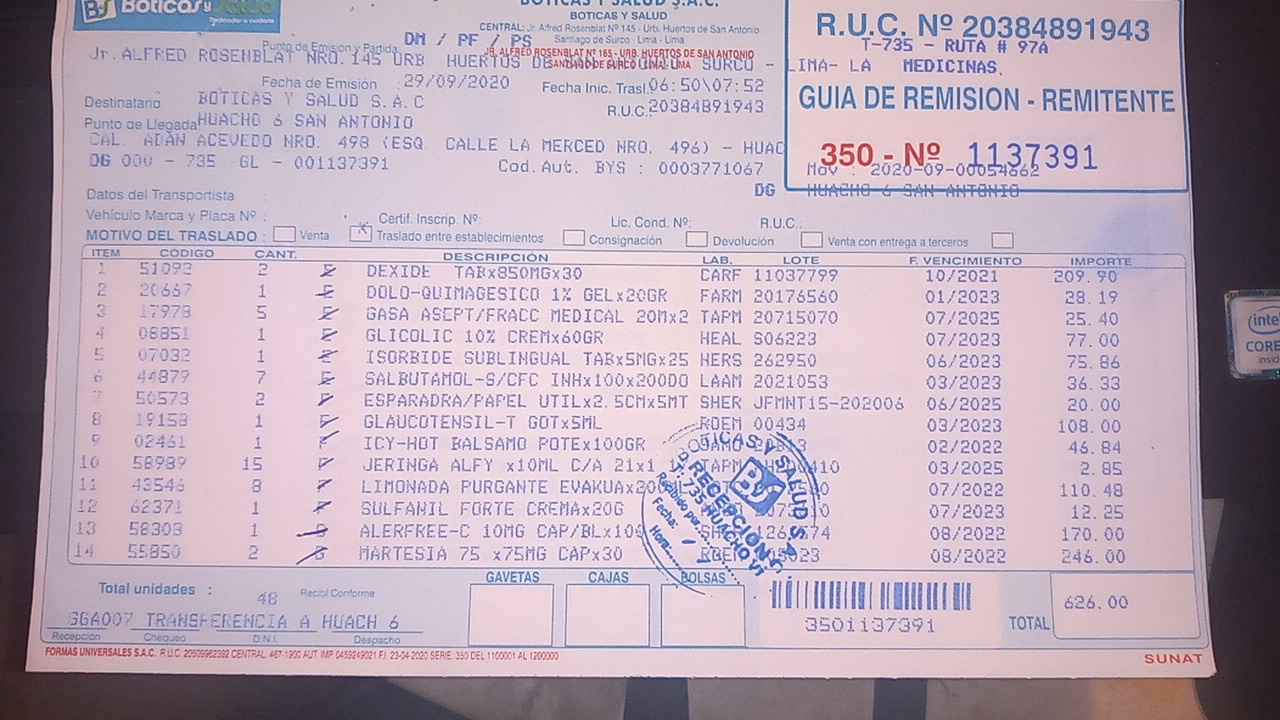 Boticas y Salud
Dedicados a cuidarte
BOTICAS Y SALUD S.A.C.
BOTICAS Y SALUD
CENTRAL: Jr. Alfred Rosenblat Nº 145 - Urb. Huertos de San Antonio
Santiago de Surco - Lima - Lima
DM / PF / PS
JR. ALFRED ROSENBLAT Nº 165 - URB. HUERTOS DE SAN ANTONIO
SANTIAGO DE SURCO LIMA LIMA
R.U.C. Nº 20384891943
T-735 - RUTA # 97A
Punto de Emisión y Partida
Jr. ALFRED ROSENBLAT NRO. 145 URB HUERTOS DE SURCO - LIMA- LA MEDICINAS.
GUIA DE REMISION - REMITENTE
350 - Nº 1137391
Fecha de Emisión : 29/09/2020 Fecha Inic. Trasl. 06:50\07:52
Destinatario BOTICAS Y SALUD S.A.C R.U.C.: 20384891943
Punto de Llegada HUACHO 6 SAN ANTONIO
CAL. ADAN ACEVEDO NRO. 498 (ESQ. CALLE LA MERCED NRO. 496) - HUAC
DG 000 - 735 GL - 001137391 Cod. Aut. BYS : 0003771067 Mov : 2020-09-00054662
DG HUACHO 6 SAN ANTONIO
Datos del Transportista
Vehículo Marca y Placa Nº : Certif. Inscrip. Nº: Lic. Cond. Nº: R.U.C.:
MOTIVO DEL TRASLADO : Venta X Traslado entre establecimientos Consignación Devolución Venta con entrega a terceros
ITEM CÓDIGO CANT. DESCRIPCIÓN LAB. LOTE F. VENCIMIENTO IMPORTE
1 51092 2 E DEXIDE TABx850MGx30 CARF 11037799 10/2021 209.90
2 20667 1 E DOLO-QUIMAGESICO 1% GELx20GR FARM 20176560 01/2023 28.19
3 17978 5 E GASA ASEPT/FRACC MEDICAL 20Mx2 TAPM 20715070 07/2025 25.40
4 08851 1 E GLICOLIC 10% CREMx60GR HEAL S06223 07/2023 77.00
5 07032 1 E ISORBIDE SUBLINGUAL TABx5MGx25 HERS 262950 06/2023 75.86
6 44879 7 E SALBUTAMOL-S/CFC INHx100x200DO LAAM 2021053 03/2023 36.33
7 50573 2 E ESPARADRA/PAPEL UTILx2.5CMx5MT SHER JFMNT15-202006 06/2025 20.00
8 19158 1 F GLAUCOTENSIL-T GOTx5ML ROEM 00434 03/2023 108.00
9 02461 1 F ICY-HOT BALSAMO POTEx100GR 02/2022 46.84
10 58989 15 F JERINGA ALFY x10ML C/A 21x1 TAPM 03/2025 2.85
11 43546 8 F LIMONADA PURGANTE EVAKUAx20 07/2022 110.48
12 62371 1 F SULFANIL FORTE CREMAx20G 07/2023 12.25
13 58303 1 B ALERFREE-C 10MG CAP/BLx10 08/2022 170.00
14 55850 2 B MARTESIA 75 x75MG CAPx30 ROEM 08/2022 246.00
BOTICAS Y SALUD S.A.C.
RECEPCION
T-735 HUACHO VI
Recibido por:
Fecha:
Hora:
Total unidades : 48 Recibí Conforme GAVETAS CAJAS BOLSAS
GGA007 TRANSFERENCIA A HUACH 6
Recepción Chequeo D.N.I. Despacho
3501137391
TOTAL 626.00
FORMAS UNIVERSALES S.A.C. R.U.C. 20509962392 CENTRAL: 467-1900 AUT. IMP. 0459249021 F.I. 23-04-2020 SERIE: 350 DEL 1100001 AL 1200000
SUNAT
intel
CORE
inside